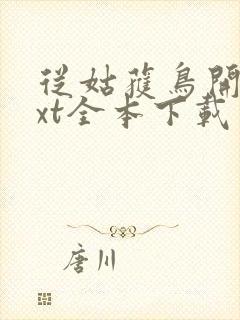 從姑獲鳥開
xt全本下載
唐川